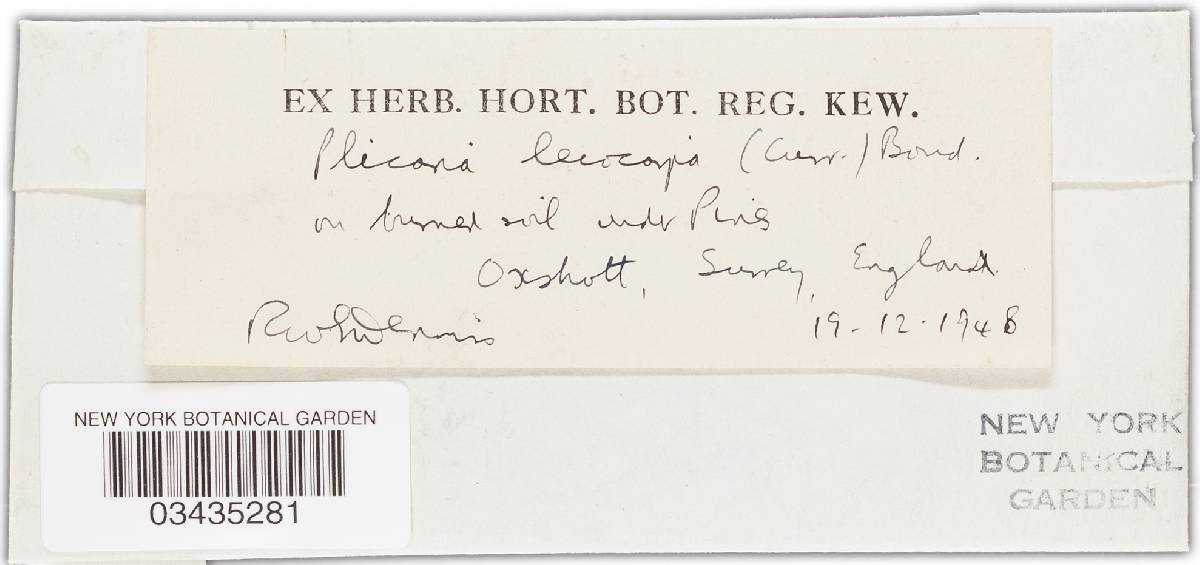 EX HERB. HORT. BOT. REG. KEW.
Plicaria leiocarpa (Curr.) Boud.
on burned soil under Pines
Oxshott, Surrey, England
RWG Dennis 19-12-1948
NEW YORK BOTANICAL GARDEN
03435281
NEW YORK
BOTANICAL
GARDEN